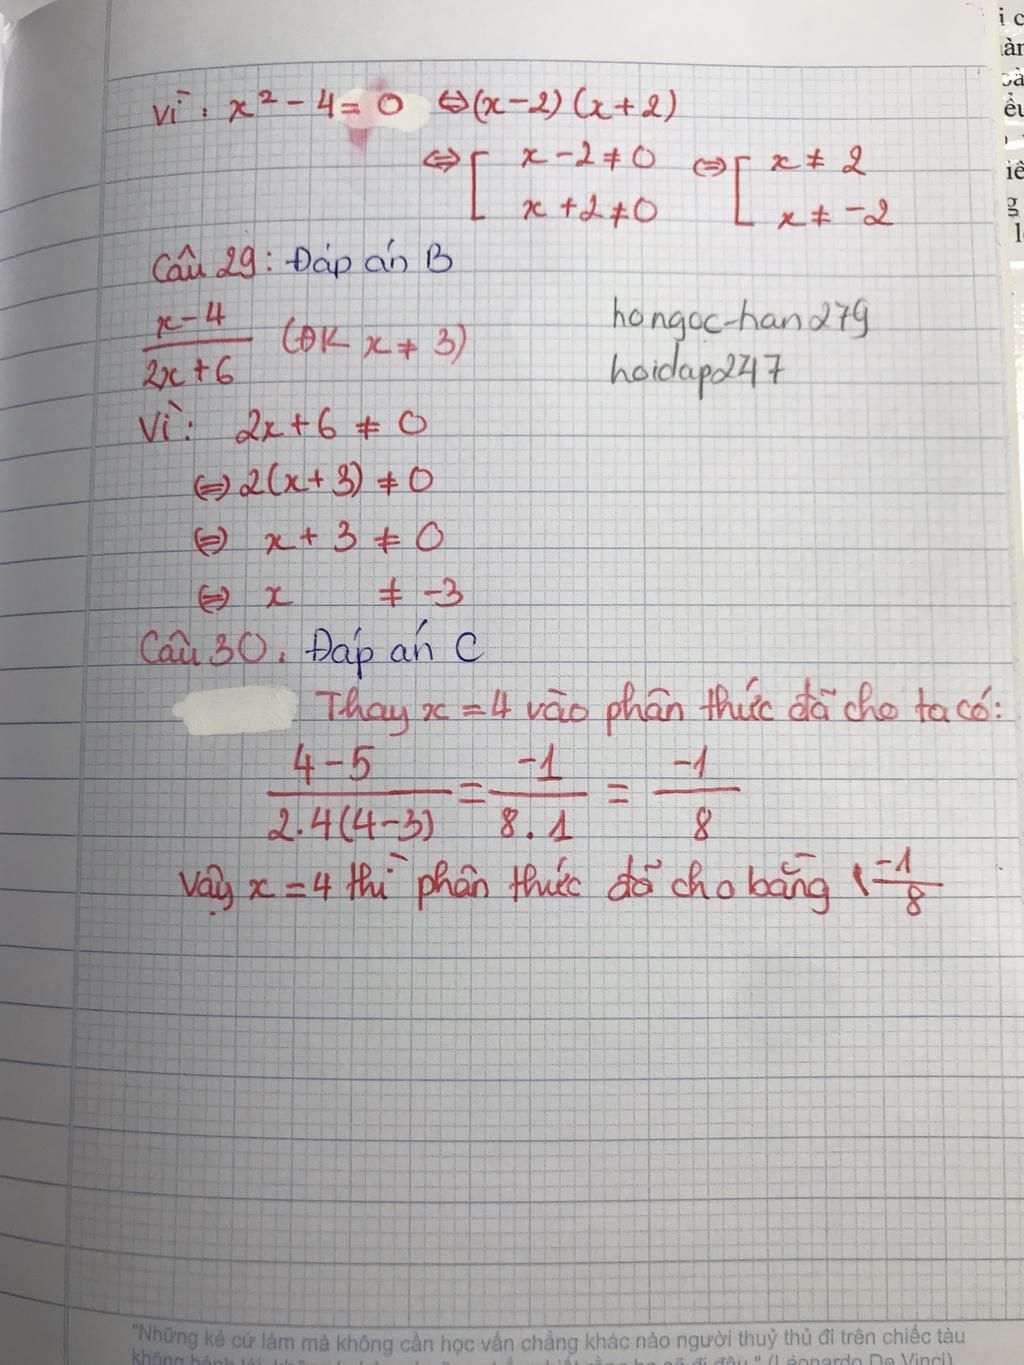 Vì : x² - 4 = 0 ⇔ (x-2) (x+2)
⇔ [ x - 2 ≠ 0 ⇔ [ x ≠ 2
x + 2 ≠ 0 x ≠ -2
Câu 29: Đáp án B
x-4 / 2x+6 (ĐK x ≠ 3)
hongoc-han279
hoidap247
Vì: 2x+6 ≠ 0
⇔ 2(x+3) ≠ 0
⇔ x + 3 ≠ 0
⇔ x ≠ -3
Câu 30. Đáp án C
Thay x = 4 vào phân thức đã cho ta có:
4-5 / 2.4(4-3) = -1 / 8.1 = -1 / 8
Vậy x = 4 thì phân thức đã cho bằng -1 / 8
"Những kẻ cứ làm mà không cần học vấn chẳng khác nào người thuỷ thủ đi trên chiếc tàu
(Léonardo De Vinci)